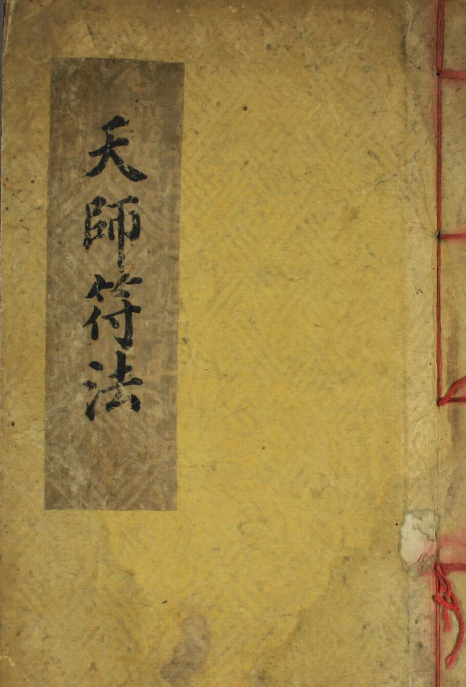 天師符法